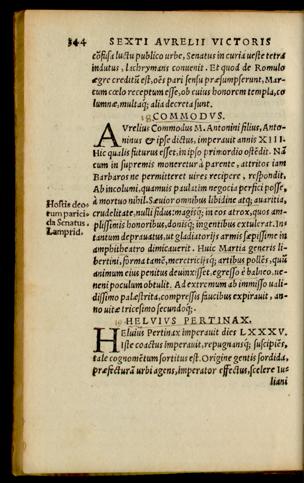 344 SEXTI AVRELII VICTORIS
cõfusa luctu publico urbe, Senatus in curia ueste tetra
indutus, lachrymans convenit. Et quod de Romulo
ægre creditũ est, oẽs pari sensu præsumpserunt, Mar-
cum cœlo receptum esse, ob cuius honorem templa, co
lumnæ, multaq; alia decreta sunt.
18 COMMODVS.
AVrelius Commodus M. Antonini filius, Anto-
ninus & ipse dictus, imperauit annis XIII.
Hic qualis futurus esset, in ipso primordio ostẽdit. Nã
cum in supremis moneretur à parente, attritos iam
Barbaros ne permitteret uires recipere, respondit,
Ab incolumi, quamuis paulatim negocia perfici posse,
à mortuo nihil. Sæuior omnibus libidine atq; auaritia,
Hostis deo-
rum parici-
da Senatus
Lamprid.
crudelitate, nulli fidus: magisq; in eos atrox, quos am-
plissimis honoribus, donisq; ingentibus extulerat. In
tantum deprauatus, ut gladiatorijs armis sæpissime in
amphitheatro dimicauerit. Huic Martia generis li-
bertini, forma tamẽ, meretricijsq; artibus pollẽs, quũ
animum eius penitus deuinxisset, egresso è balneo, ue-
neni poculum obtulit. Ad extremum ab immisso uali-
dissimo palæstrita, compressis faucibus expirauit, an-
no uitæ tricesimo secundoq;.
19 HELVIVS PERTINAX.
HEluius Pertinax imperauit dies LXXXV.
Iste coactus imperauit, repugnansq; suscipiẽs,
tale cognomẽtum sortitus est. Origine gentis sordida,
præfecturã urbi agens, imperator effectus, scelere Iu-
liani